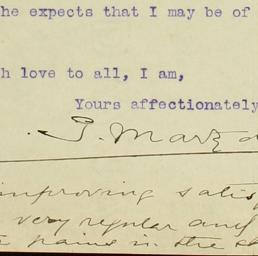 he expects that I may be of
h love to all, I am,
Yours affectionately
improving satis
very regular and
pains in the